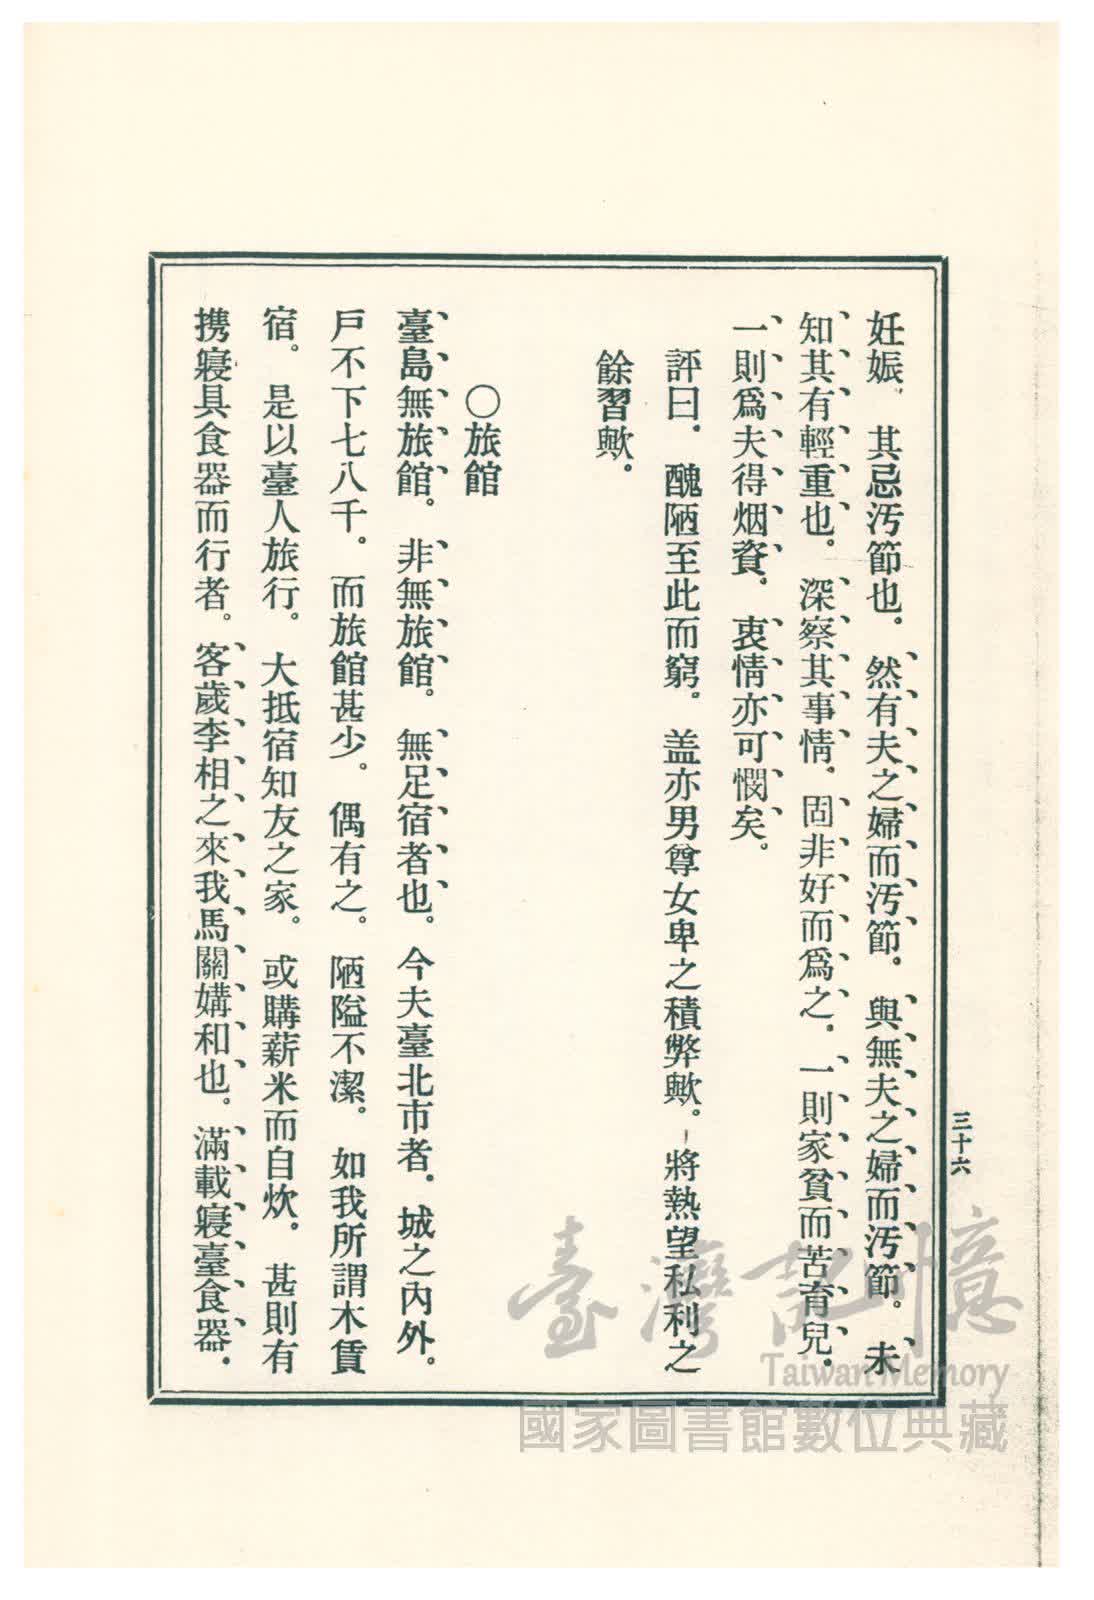 妊娠、其忌汚節也。然有夫之婦而汚節。與無夫之婦而汚節。未
知其有輕重也。深察其事情。固非好而爲之。一則家貧而苦育兒。
一則爲夫得烟資。衷情亦可憫矣。
評曰。醜陋至此而窮。盖亦男尊女卑之積弊歟。將熱望私利之
餘習歟。
○旅館
臺島無旅館。非無旅館。無足宿者也。今夫臺北市者。城之內外。
戶不下七八千。而旅館甚少。偶有之。陋隘不潔。如我所謂木賃
宿。是以臺人旅行。大抵宿知友之家。或購薪米而自炊。甚則有
携寢具食器而行者。客歲李相之來我馬關媾和也。滿載寢臺食器。
三十六
臺灣記憶
Taiwan Memory
國家圖書館數位典藏